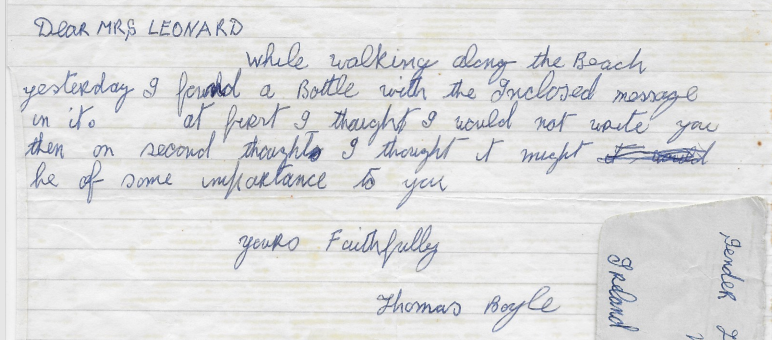 Dear MRS LEONARD
While walking along the Beach
yesterday I found a Bottle with the Inclosed message
in it. at first I thought I would not write you
then on second thoughts I thought it might
be of some importance to you
yours Faithfully
Thomas Boyle
Sender
Ireland